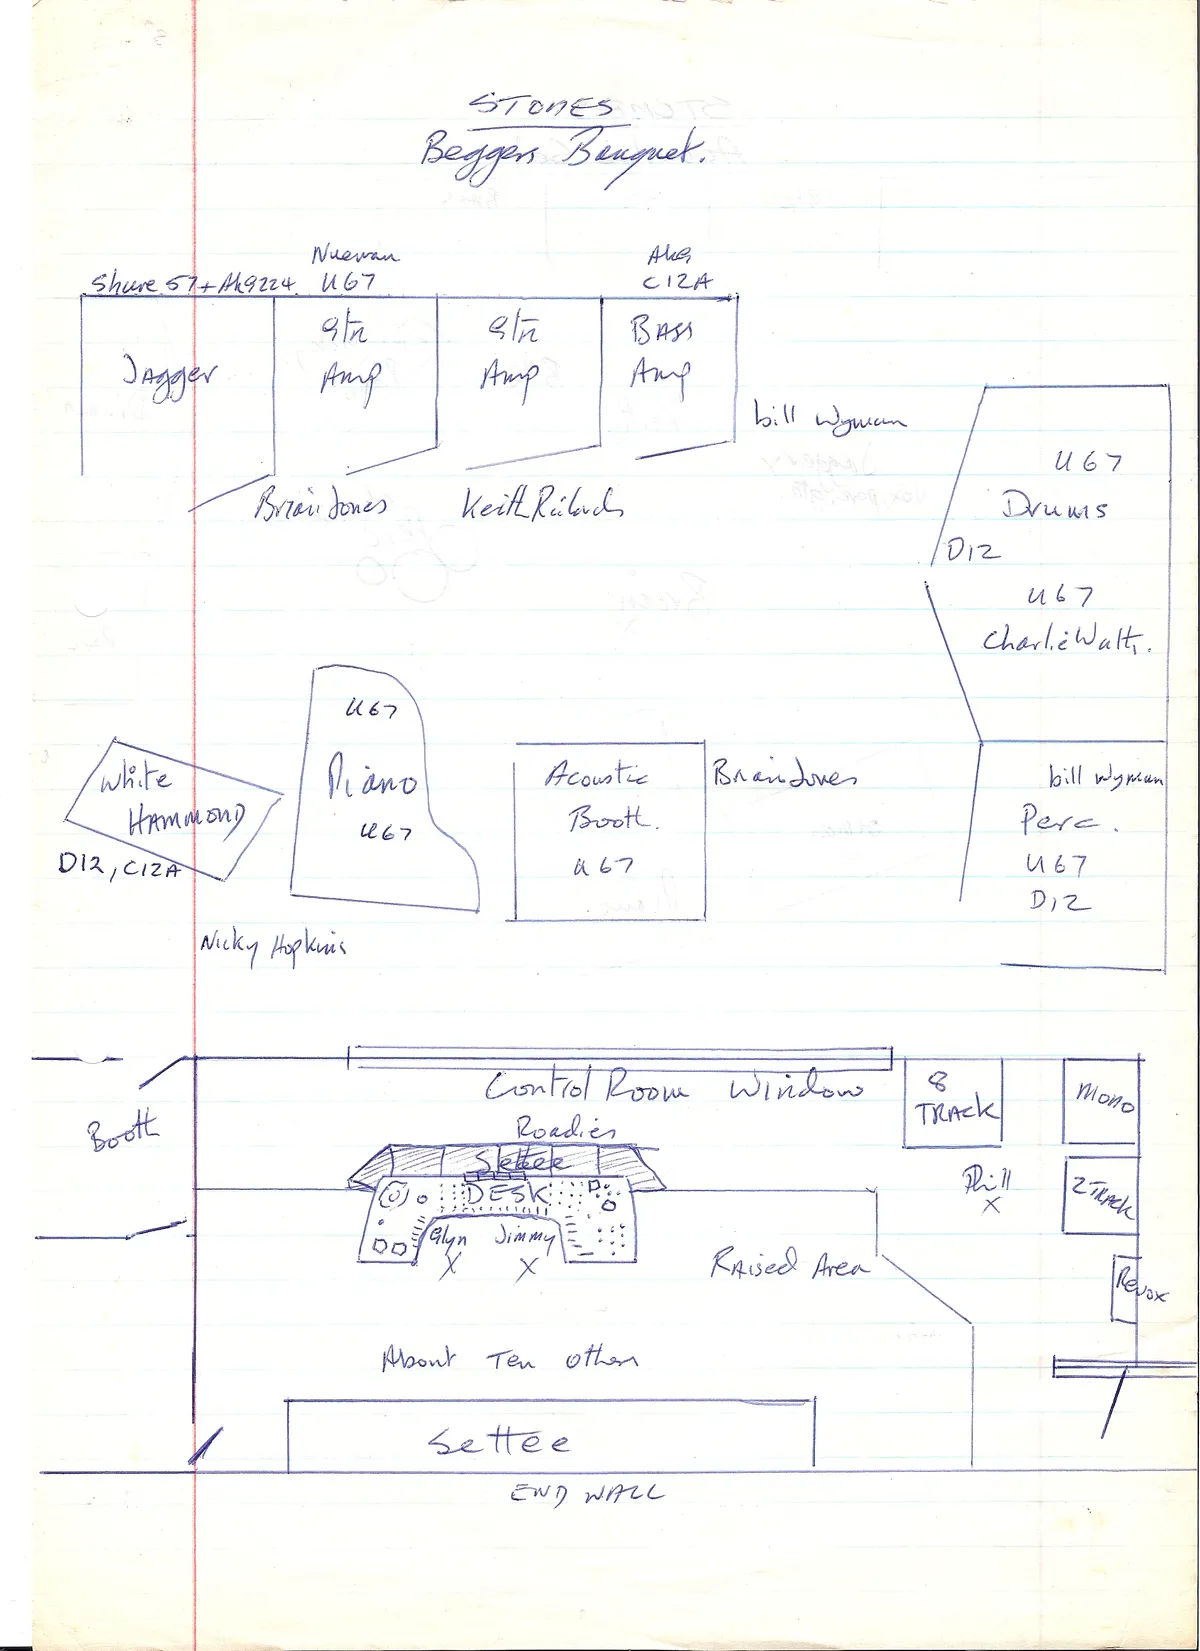 STONES
Beggers Banquet.
Nueman
Akg
Shure 57 + Akg224 U67
C12A
Jagger
Gtr
Amp
Gtr
Amp
BASS
Amp
bill Wyman
Brian Jones
Keith Richards
U67
Drums
D12
U67
Charlie Watts.
White
HAMMOND
D12, C12A
U67
Piano
U67
Nicky Hopkins
Acoustic
Booth.
U67
Brian Jones
bill Wyman
Perc.
U67
D12
Control Room Window
8
TRACK
Mono
Booth
Roadies
Settee
DESK
Glyn Jimmy
X X
Phill
X
2 TRACK
Raised Area
Revox
About Ten others
Settee
END WALL